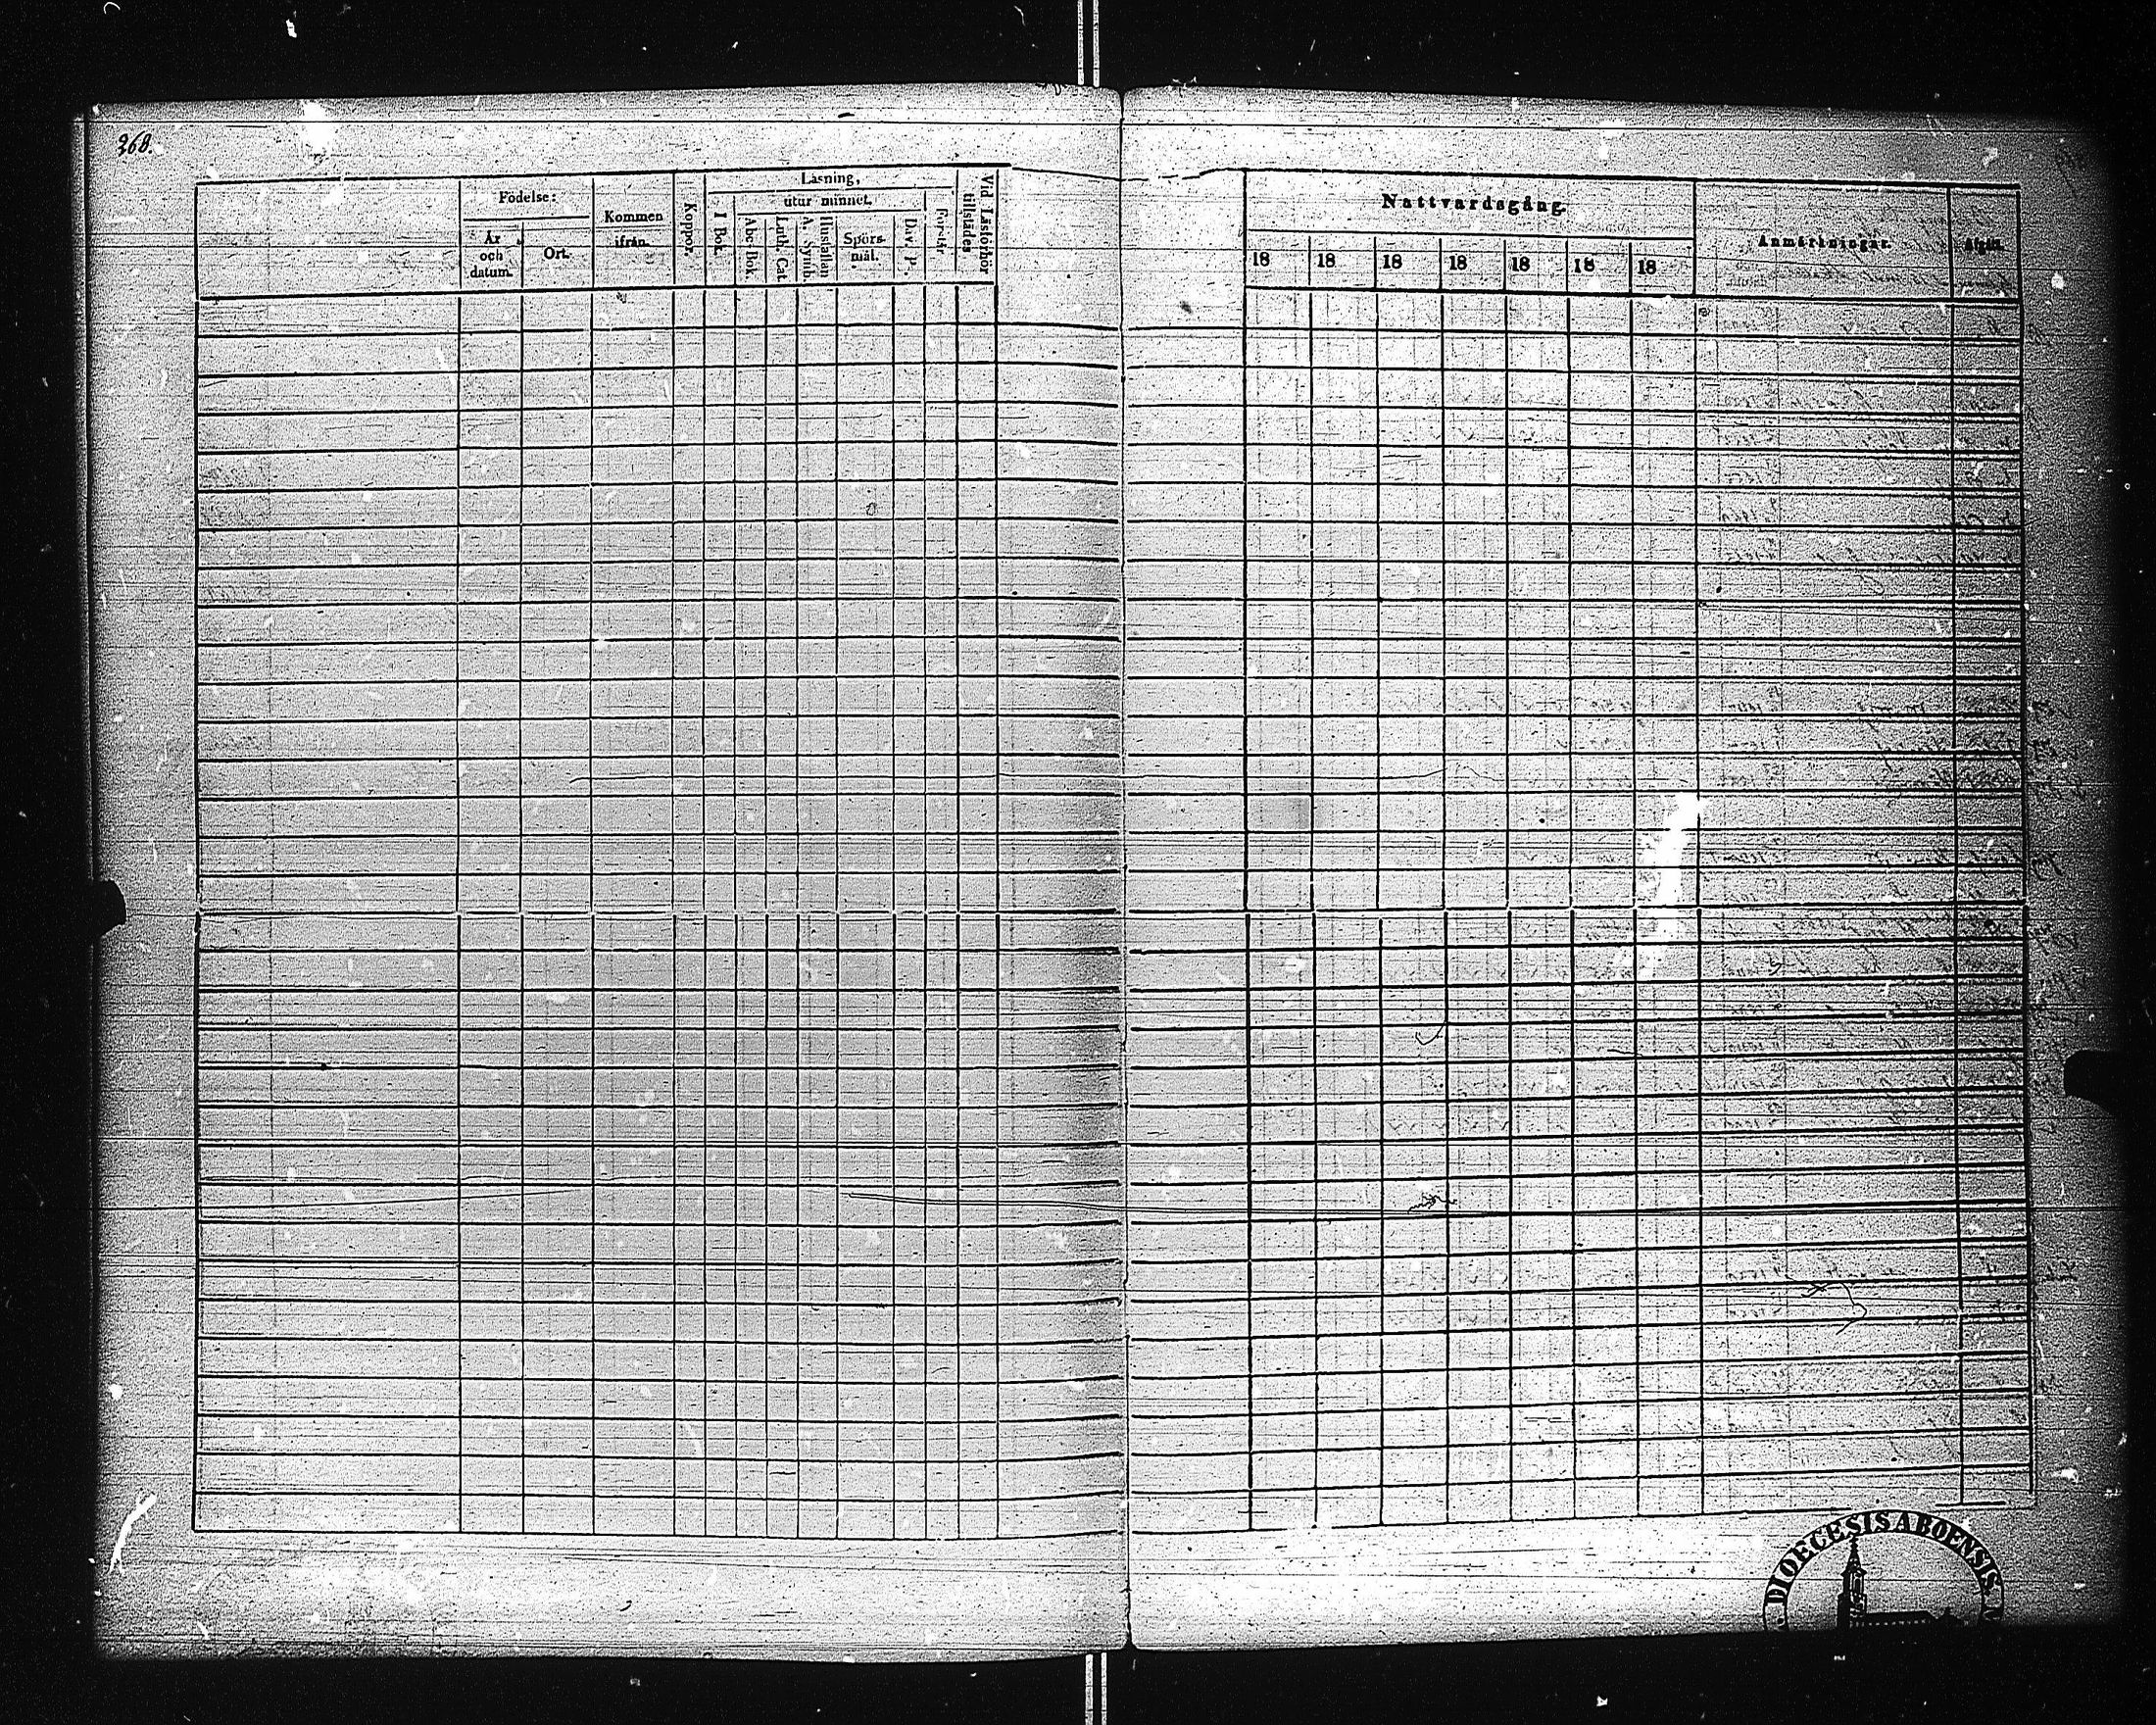 368.
Födelse:
År och datum.
Ort.
Kommen ifrån.
Koppor.
Läsning,
I Bok.
utur minnet.
Abc-Bok.
Luth. Cat.
Hustaflan A. Symb.
Spörsmål.
Dav. P.
Förstår.
Vid Läsförhör tillstädes
Nattvardsgång.
18 18 18 18 18 18 18
Anmärkningar.
Afgått.
DIOECESIS ABOENSIS